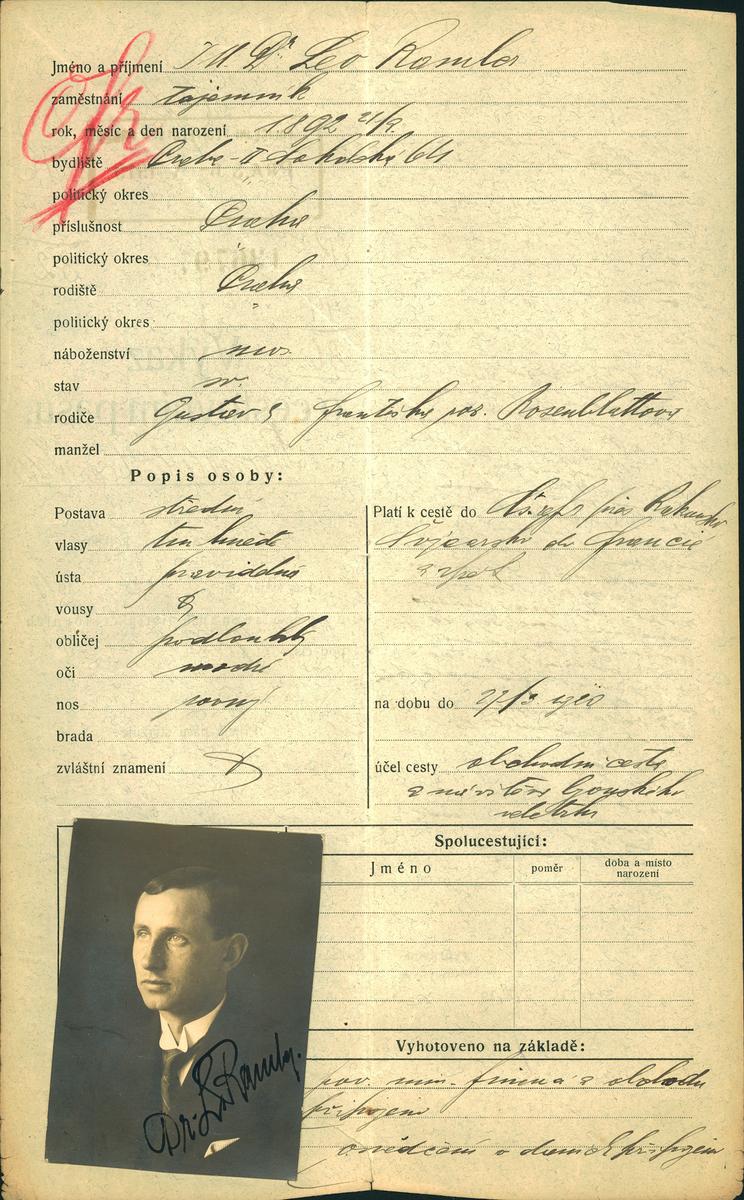 Jméno a příjmení JUDr Leo Rambler
zaměstnání tajemník
rok, měsíc a den narození 1892 21/9
bydliště Praha - II Sokolská 64
politický okres "
příslušnost Praha
politický okres
rodiště Praha
politický okres "
náboženství mos.
stav sv.
rodiče Gustav & Františka roz. Rosenblattova
manžel
Popis osoby:
Postava střední
vlasy tm. hnědé
ústa pravidelná
vousy
obličej podlouhlý
oči modré
nos rovný
brada
zvláštní znamení
Platí k cestě do přes Rakousko
Švýcarsko do Francie
a zpět
na dobu do 27/3 1920
účel cesty obchodní cesta
a návštěva Lyonského
veletrhu
Spolucestující:
Jméno poměr doba a místo narození
Vyhotoveno na základě:
pov. min. financí a obchodu
připojen
osvědčení o dani připojen
Dr. L. Rambler.